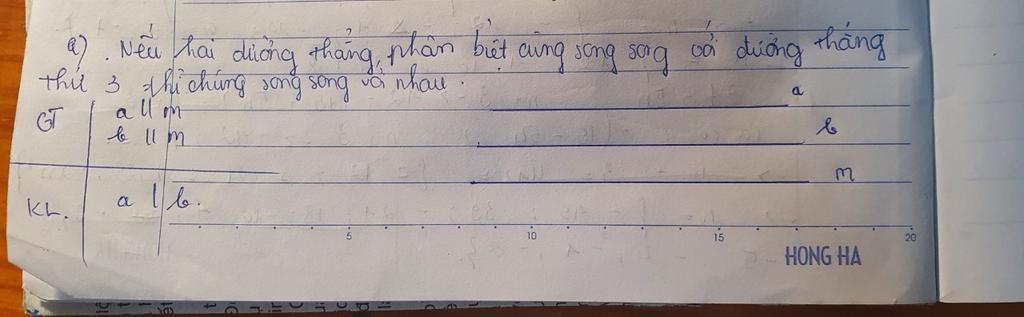 a). Nếu hai đường thẳng, phân biệt cùng song song với đường thẳng
thứ 3 thì chúng song song và nhau.
a
GT
a || m
b || m
b
m
KL.
a | b.
5 10 15 20
HONG HA